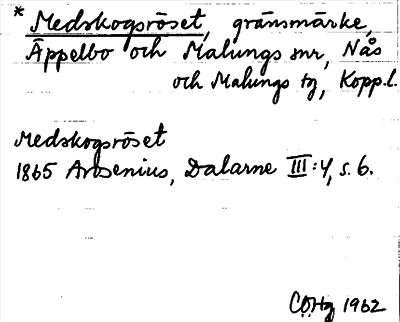 * Medskogsröset, gränsmärke,
Äppelbo och Malungs snr, Nås
och Malungs tg, Kopp.l.
Medskogsröset
1865 Arosenius, Dalarne III:4, s. 6.
CÖHg 1962